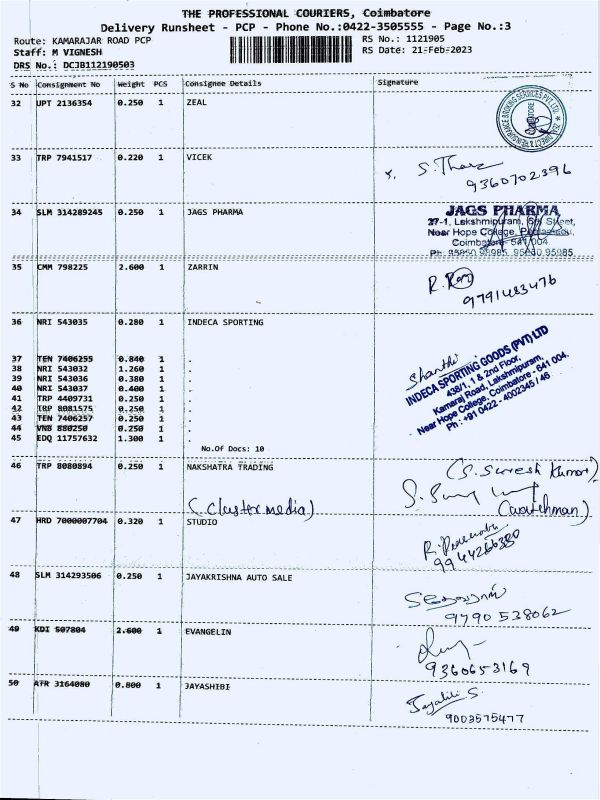 THE PROFESSIONAL COURIERS, Coimbatore
Delivery Runsheet - PCP - Phone No.:0422-3505555 - Page No.:3
Route: KAMARAJAR ROAD PCP
RS No.: 1121905
Staff: M VIGNESH
RS Date: 21-Feb-2023
DRS No.: DCJB112190503
S No Consignment No Weight PCS Consignee Details Signature
32 UPT 2136354 0.250 1 ZEAL
33 TRP 7941517 0.220 1 VICEK
9360702396
34 SLM 314289245 0.250 1 JAGS PHARMA
JAGS PHARMA
27-1, Lakshmipuram, Street,
Near Hope College,
Coimbatore- 641 004.
35 CMM 798225 2.600 1 ZARRIN
9791483476
36 NRI 543035 0.280 1 INDECA SPORTING
Shanthi
INDECA SPORTING GOODS (PVT) LTD
438/1, 1 & 2nd Floor,
Kamaraj Road, Lakshmipuram,
Near Hope College, Coimbatore - 641 004.
Ph : +91 0422 - 4002345 / 46
37 TEN 7406255 0.840 1 .
38 NRI 543032 1.260 1 .
39 NRI 543036 0.380 1 .
40 NRI 543037 0.400 1 .
41 TRP 4409731 0.250 1 .
42 TRP 8081575 0.250 1 .
43 TEN 7406257 0.250 1 .
44 VNB 880250 0.250 1 .
45 EDQ 11757632 1.300 1 .
No.Of Docs: 10
46 TRP 8080894 0.250 1 NAKSHATRA TRADING
(S. Suresh Kumar)
(Cluster media)
(watchman)
47 HRD 7000007704 0.320 1 STUDIO
9944266380
48 SLM 314293506 0.250 1 JAYAKRISHNA AUTO SALE
9790538062
49 KDI 507804 2.600 1 EVANGELIN
9360653169
50 ATR 3164080 0.800 1 JAYASHIBI
9003575477